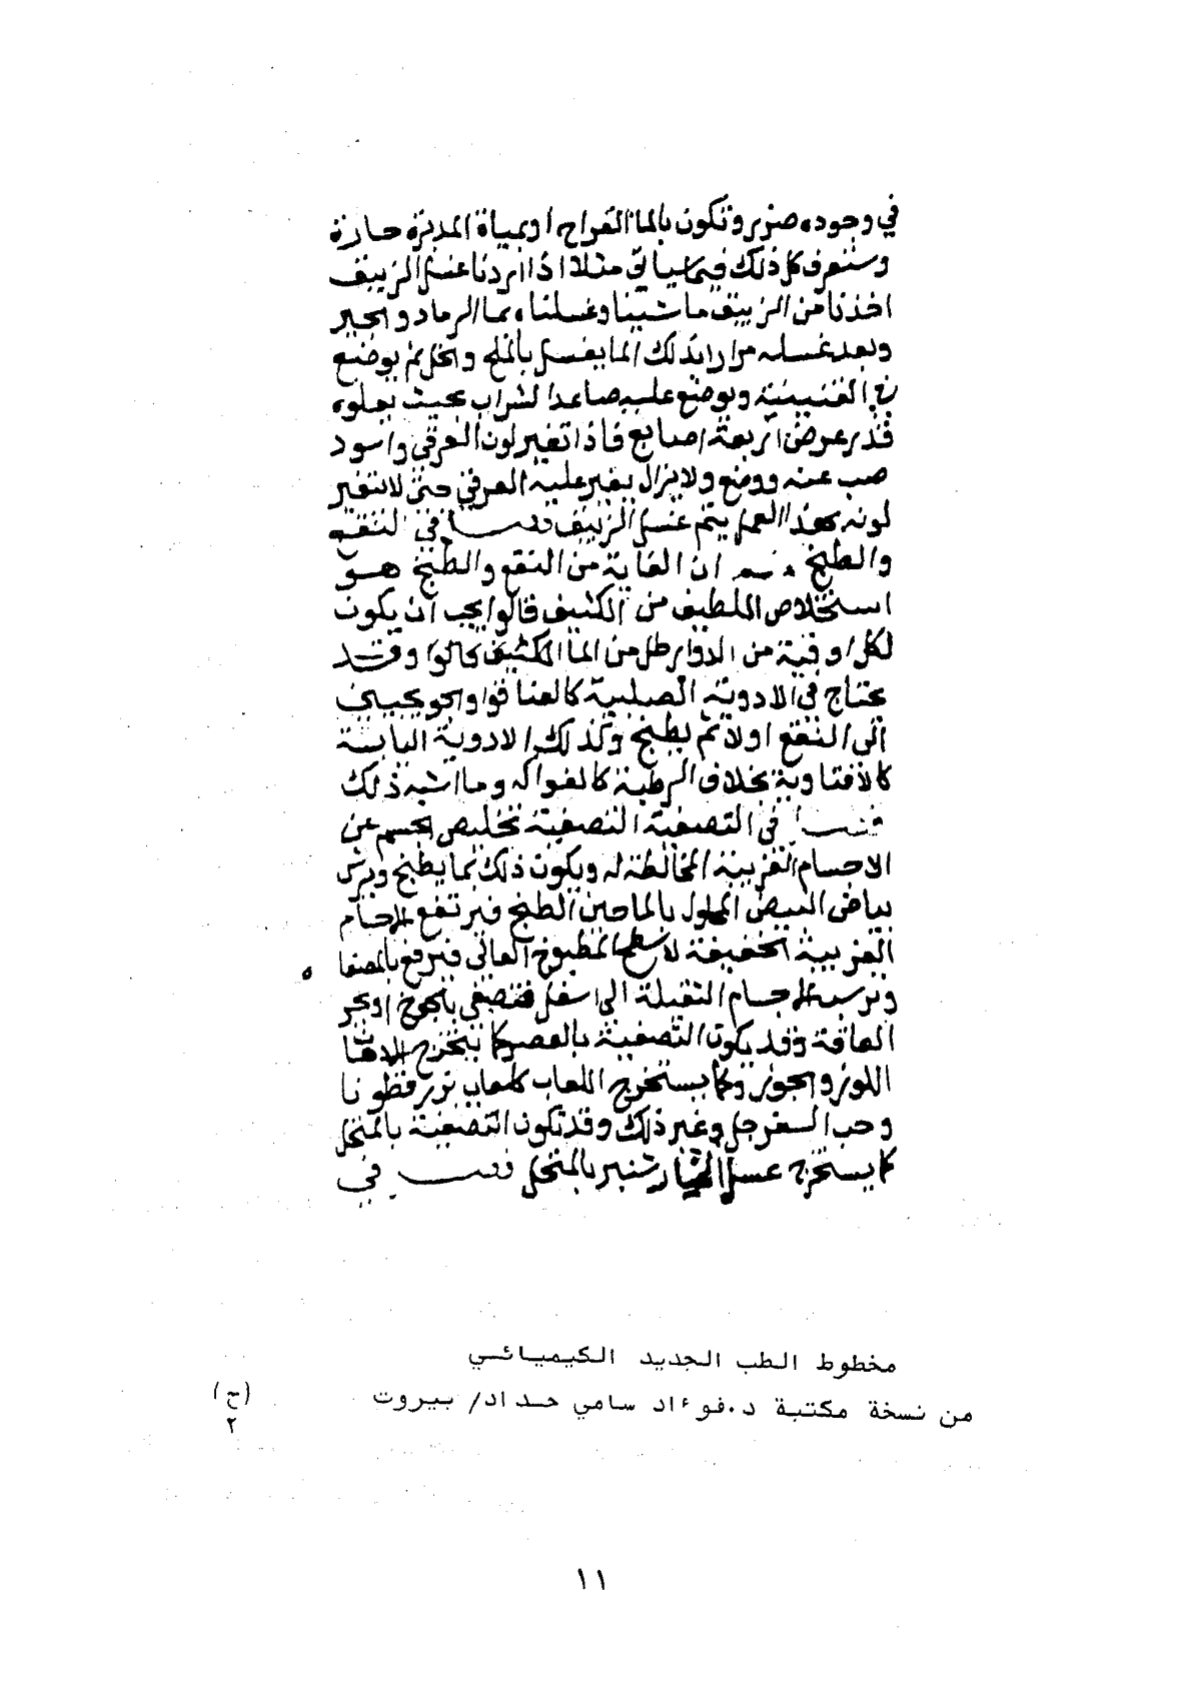 في وجوده ضرر وتكون بالما القراح او بمياة المدبره حارة
وستعرف كل ذلك فيما ياتي مثلا اذا اردنا غسل الزيبق
اخذنا من الزيبق ما شينا وغسلناه بما الرماد والجير
وبعد غسله مرارا بذلك الما يغسل بالملح والخل ثم يوضع
في القنينية ويوضع عليه صاعد الشراب بحيث يعلوه
قدر عرض اربعة اصابع فاذا تغير لون العرقي واسود
صب عنه ووضع ولا يزال يغير عليه العرقي حتى لا يتغير
لونه بهذا العمل يتم غسل الزيبق فصل في النقع
والطبخ ان الغاية من النقع والطبخ هو
استخلاص اللطيف من الكثيف قالوا يجب ان يكون
لكل اوقية من الدوا رطل من الما الكثيف قالوا وقد
يحتاج في الادوية الصلبية كالعنا قوا والجوبجيني
الى النقع اولا ثم يطبخ وكذلك الادوية اليابسة
كالافتاوية بخلاف الرطبة كالفواكه وما اشبه ذلك
فصل في التصفية التصفية تخليص الجسم عن
الاجسام الغريبة المخالطة له ويكون ذلك بما يطبخ ويرش
بياض البيض المحلول بالما حين الطبخ فيرتفع الاجسام
الغريبة الخفيفة لاسطح المطبوخ العالي فيرفع بالمصفا ه
وترسب الاجسام الثقيلة الى اسفل فتصفى بالجوخ او بجر
العاقة وقد يكون التصفية بالعصر كما يتخرج الادهان
اللوز والجوز وكما يستخرج اللعاب كلعاب بزر قطونا
وحب السفرجل وغير ذلك وقد تكون التصفية بالمنخل
كما يستخرج عسل الخيار شنبر بالمنخل فصل في
مخطوط الطب الجديد الكيميائي
من نسخة مكتبة د.فوءاد سامي حداد/ بيروت
(ح)
٢
١١